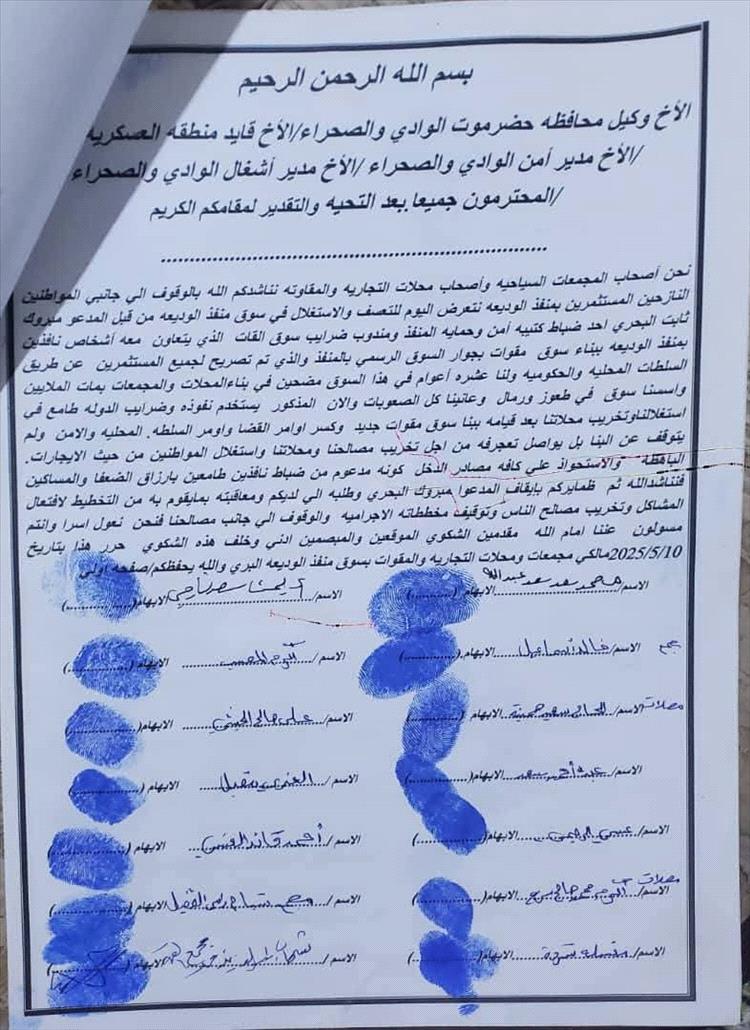 بسم الله الرحمن الرحيم
الأخ وكيل محافظه حضرموت الوادي والصحراء/الأخ قايد منطقه العسكريه
/الأخ مدير أمن الوادي والصحراء /الأخ مدير أشغال الوادي والصحراء
/المحترمون جميعا بعد التحيه والتقدير لمقامكم الكريم
نحن أصحاب المجمعات السياحيه وأصحاب محلات التجاريه والمقاوته نناشدكم الله بالوقوف الي جانبي المواطنين
النازحين المستثمرين بمنفذ الوديعه نتعرض اليوم للتعصف والاستغلال في سوق منفذ الوديعه من قبل المدعو مبروك
ثابت البحري احد ضباط كتيبه أمن وحمايه المنفذ ومندوب ضرايب سوق القات الذي يتعاون معه أشخاص نافذين
بمنفذ الوديعه ببناء سوق مقوات بجوار السوق الرسمي بالمنفذ والذي تم تصريح لجميع المستثمرين عن طريق
السلطات المحليه والحكوميه ولنا عشره أعوام في هذا السوق مضحين في بناءالمحلات والمجمعات بمات الملايين
واسسنا سوق في طعوز ورمال وعانينا كل الصعوبات والان المذكور يستخدم نفوذه وضرايب الدوله طامع في
استغلالناوتخريب محلاتنا بعد قيامه ببنا سوق مقوات جديد وكسر اوامر القضا واومر السلطه. المحليه والامن ولم
يتوقف عن البنا بل يواصل تعجرفه من اجل تخريب مصالحنا ومحلاتنا واستغلال المواطنين من حيث الايجارات.
الباهظه والاستحواذ علي كافه مصادر الدخل كونه مدعوم من ضباط نافذين طامعين بارزاق الضعفا والمساكين
فنناشدالله ثم ظمايركم بإيقاف المدعوا مبروك البحري وطلبه الي لديكم ومعاقبته بمايقوم به من التخطيط لافتعال
المشاكل وتخريب مصالح الناس وتوقيف مخططاته الاجراميه والوقوف الي جانب مصالحنا فنحن نعول اسرا وانتم
مسولون عننا امام الله مقدمين الشكوي الموقعين والمبصمين ادني وخلف هذه الشكوي حرر هذا بتاريخ
2025/5/10مالكي مجمعات ومحلات التجاريه والمقوات بسوق منفذ الوديعه البري والله يحفظكم/صفحه اولى
الاسم/محمد سعد سعد عبدالله الابهام (............)
الاسم/ الابهام (............)
الاسم/خالد اسماعيل الابهام (............)
الاسم/ الابهام (............)
الاسم/ سعيد الابهام (............)
الاسم/علي صالح الابهام (............)
الاسم/عبده أحمد سعد الابهام (............)
الاسم/ مقبل الابهام (............)
الاسم/عيسى الابهام (............)
الاسم/أحمد قائد الابهام (............)
محلات
الاسم/ محمد صالح الابهام (............)
الاسم/ الابهام (............)
الاسم/ الابهام (............)
الاسم/ الابهام (............)